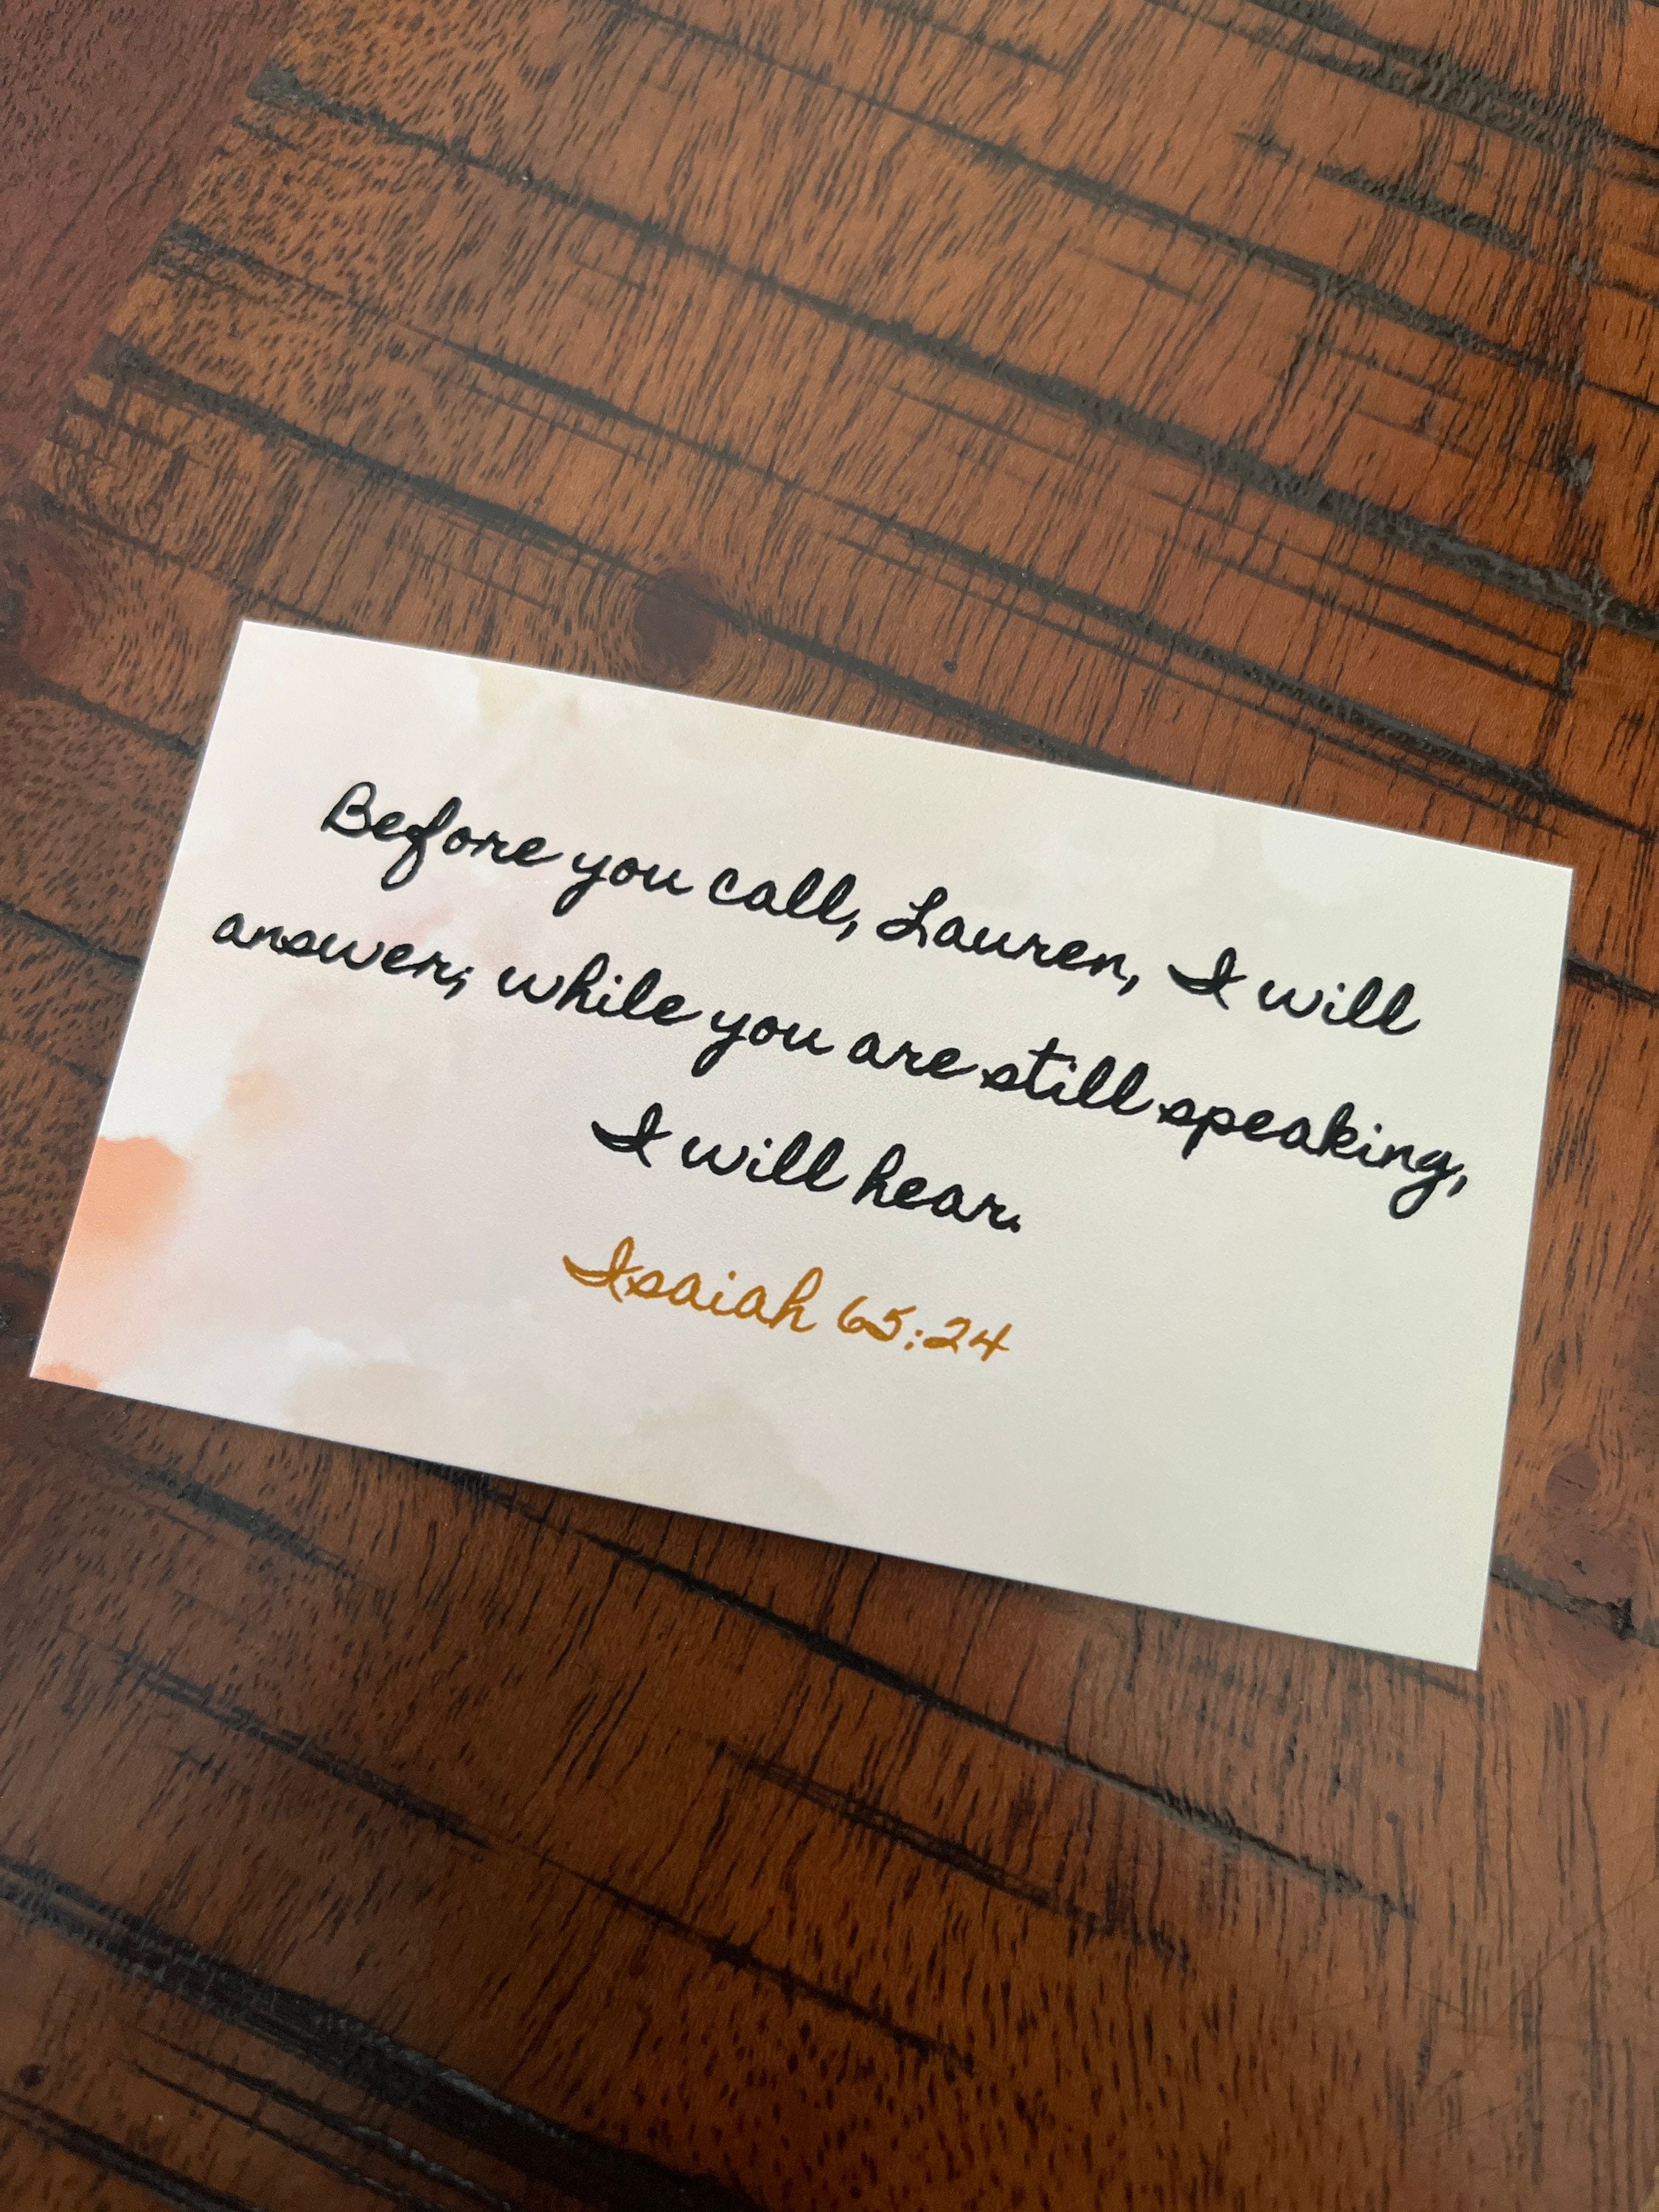 Before you call, Lauren, I will
answer; while you are still speaking,
I will hear.
Isaiah 65:24